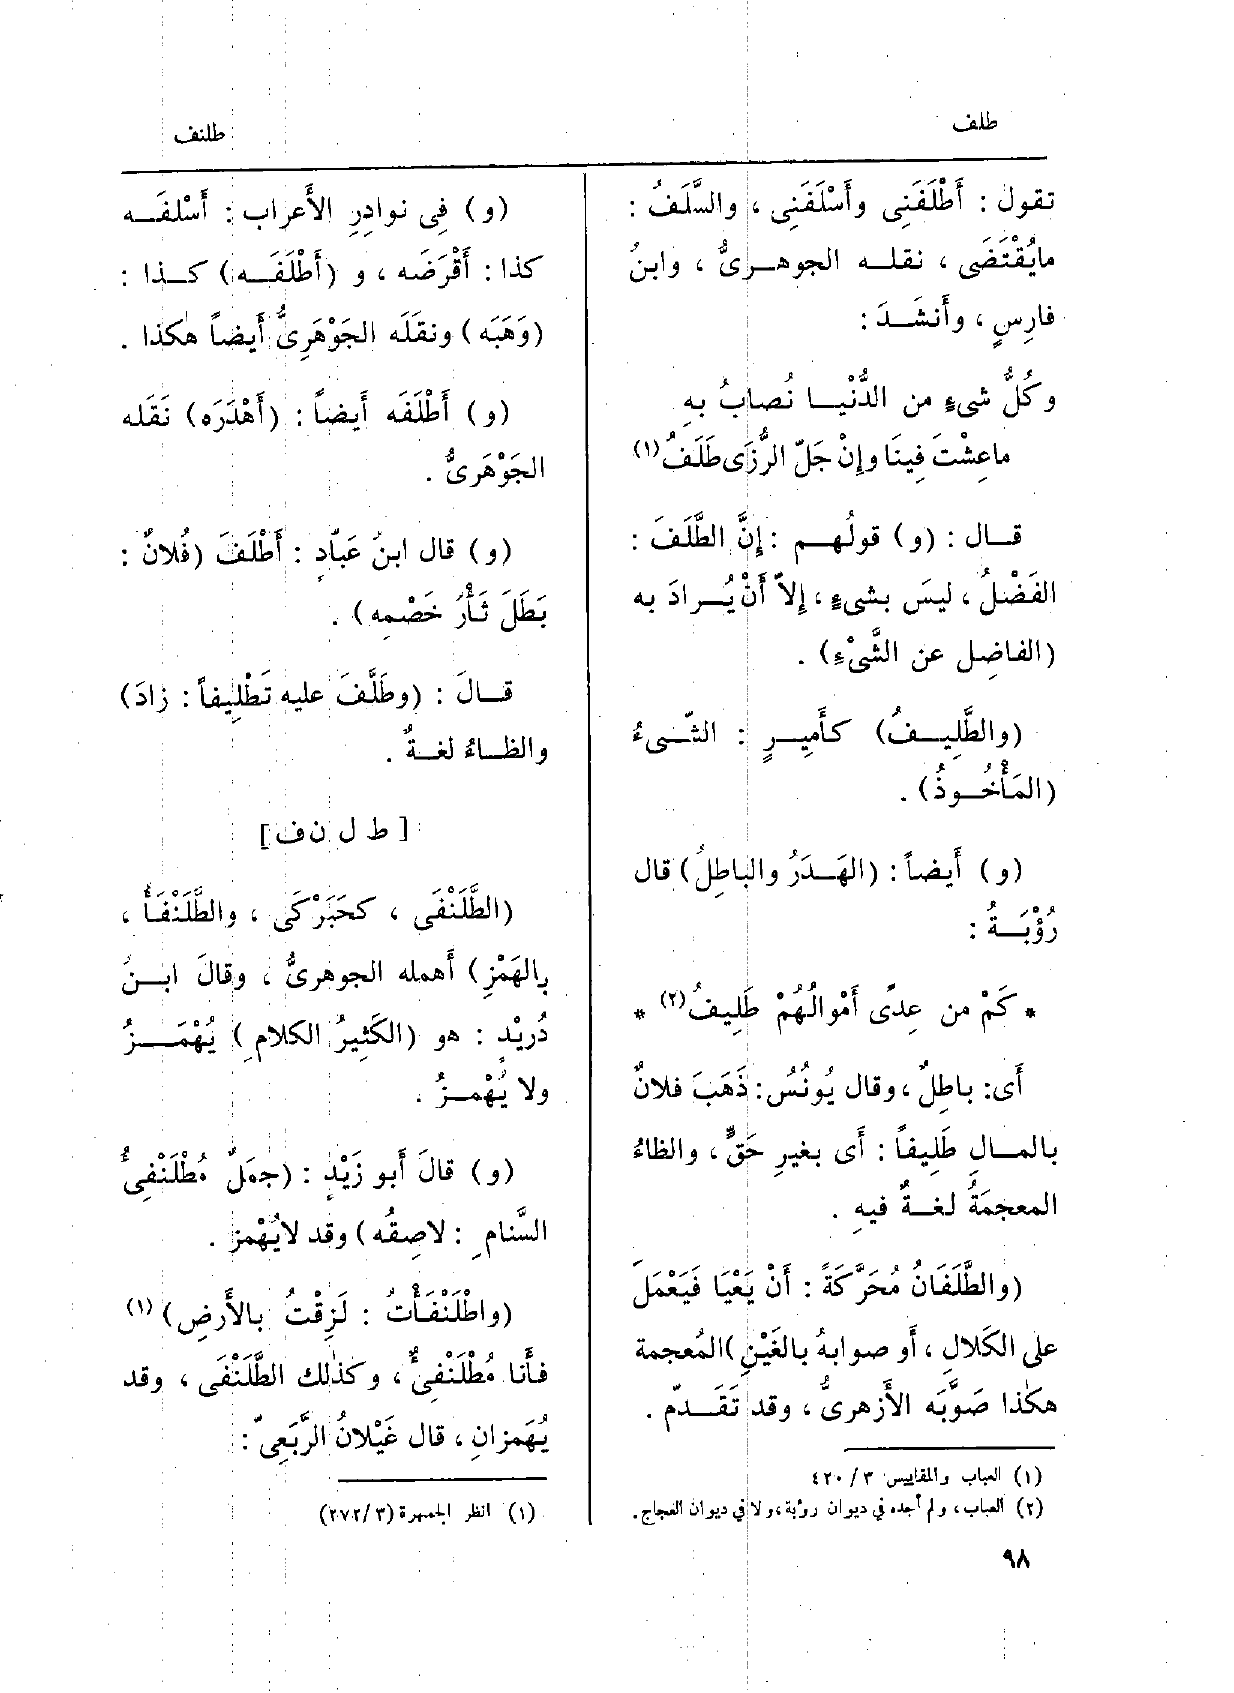 طلف
طلنف
تقول : أَطْلَفَنِى وأَسْلَفَنِى ، والسَّلَفُ :
مايُقْتَضَى ، نقلـه الجوهـرىُّ ، وابنُ
فارِسٍ ، وأَنشَـدَ :
وكُلُّ شىءٍ من الدُّنْيـا نُصابُ بهِ
ماعِشْتَ فِينَا وإِنْ جَلّ الرُّزَى طَلَفُ (١)
قـال : (و) قولُهـم : إِنَّ الطَّلَفَ :
الفَضْلُ ، ليسَ بشىءٍ ، إِلاّ أَنْ يُـرادَ به
(الفاضِل عن الشَّىْءِ) .
(والطَّلِيـفُ) كأَمِيـرٍ : الشّـىءُ
(المَأْخُـوذُ) .
(و) أَيضاً : (الهَـدَرُ والباطِلُ) قال
رُؤْبَـةُ :
* كَمْ من عِدًى أَمْوالُهُمْ طَلِيفُ (٢) *
أَى: باطِلٌ ، وقال يُونُسُ : ذَهَبَ فلانٌ
بالمـالِ طَلِيفاً : أَى بغيرِ حَقٍّ ، والظاءُ
المعجمَةُ لغـةٌ فيهِ .
(والطَّلَفَانُ مُحَرَّكَةً : أَنْ يَعْيَا فَيَعْمَلَ
على الكَلالِ ، أَو صوابهُ بالغَيْنِ ) المُعجمة
هكٰذا صَوَّبَه الأَزهرىُّ ، وقد تَقَـدّم .
(١) العباب والمقاييس ٣/ ٤٢٠
(٢) العباب ، ولم أجده فى ديوان رؤبة ، ولا فى ديوان العجاج .
(و) فِى نوادِرِ الأَعرابِ : أَسْلفَـه
كذا : أَقْرَضَه ، و (أَطْلَفَـه) كـذا :
(وَهَبَه) ونقَلَه الجَوْهَرِىُّ أَيضاً هٰكذا .
(و) أَطْلَفَه أَيضاً : (أَهْدَرَه) نَقَله
الجَوْهَرِىُّ .
(و) قال ابنُ عَبّادٍ : أَطْلَفَ (فُلانٌ :
بَطَلَ ثَأْرُ خَصْمِه) .
قـالَ : (وطَلَّفَ عليه تَطْلِيفاً : زادَ)
والظـاءُ لغـةٌ .
[ ط ل ن ف ]
(الطَّلَنْفَى ، كحَبَرْكَى ، والطَّلَنْفَأُ ،
بالهَمْزِ) أَهمله الجوهرىُّ ، وقالَ ابـنُ
دُرَيْدٍ : هو (الكَثِيرُ الكلامِ ) يُهْمَـزُ
ولا يُهْمـزُ .
(و) قالَ أَبو زَيْدٍ : (جمَلٌ مُطْلَنْفِىُّ
السَّنامِ : لاصِقُه) وقد لايُهْمز .
(واطْلَنْفَأْتُ : لَزِقْتُ بالأَرضِ) (١)
فأَنا مُطْلَنْفِئٌ ، وكذٰلك الطَّلَنْفَى ، وقد
يُهَمزانِ ، قال غَيْلانُ الرَّبَعِىّ :
(١) انظر الجمهرة (٣/ ٢٧٢)
٩٨